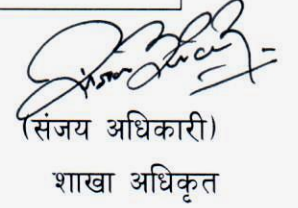 (संजय अधिकारी)
शाखा अधिकृत